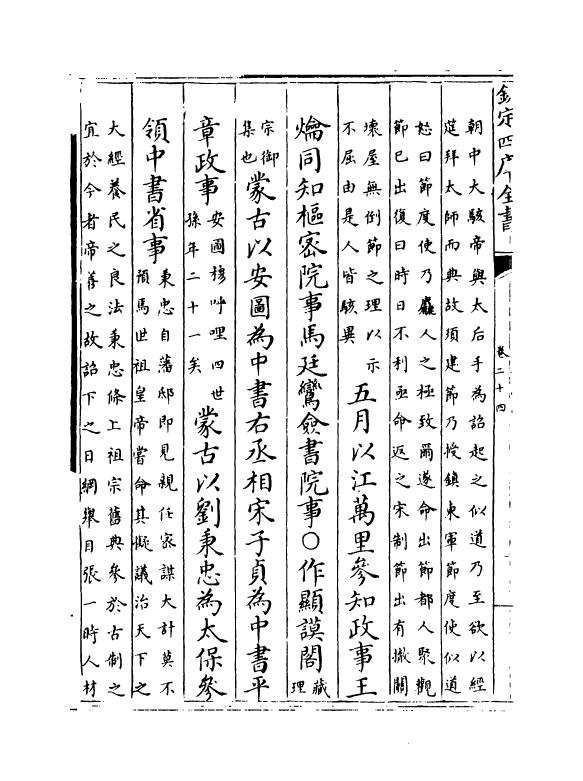 欽定四庫全書
卷二十四
朝中大駭帝與太后手為詔起之似道乃至欲以經
筵拜太師而典故須建節乃授鎮東軍節度使似道
怒曰節度使乃麤人之極致爾遂命出節都人聚觀
節已出復曰時日不利亟命返之宋制節出有撤關
壞屋無倒節之理以示
不屈由是人皆駭異
五月以江萬里參知政事王
爚同知樞密院事馬廷鸞僉書院事○作顯謨閣
藏
理
宗御
集也
蒙古以安圖為中書右丞相宋子貞為中書平
章政事
安圖穆呼哩四世
孫年二十一矣
蒙古以劉秉忠為太保參
領中書省事
秉忠自藩邸即見親任家謀大計莫不
預焉世祖皇帝嘗命其擬議治天下之
大經養民之良法秉忠條上祖宗舊典參於古制之
宜於今者帝善之故詔下之日綱舉目張一時人材